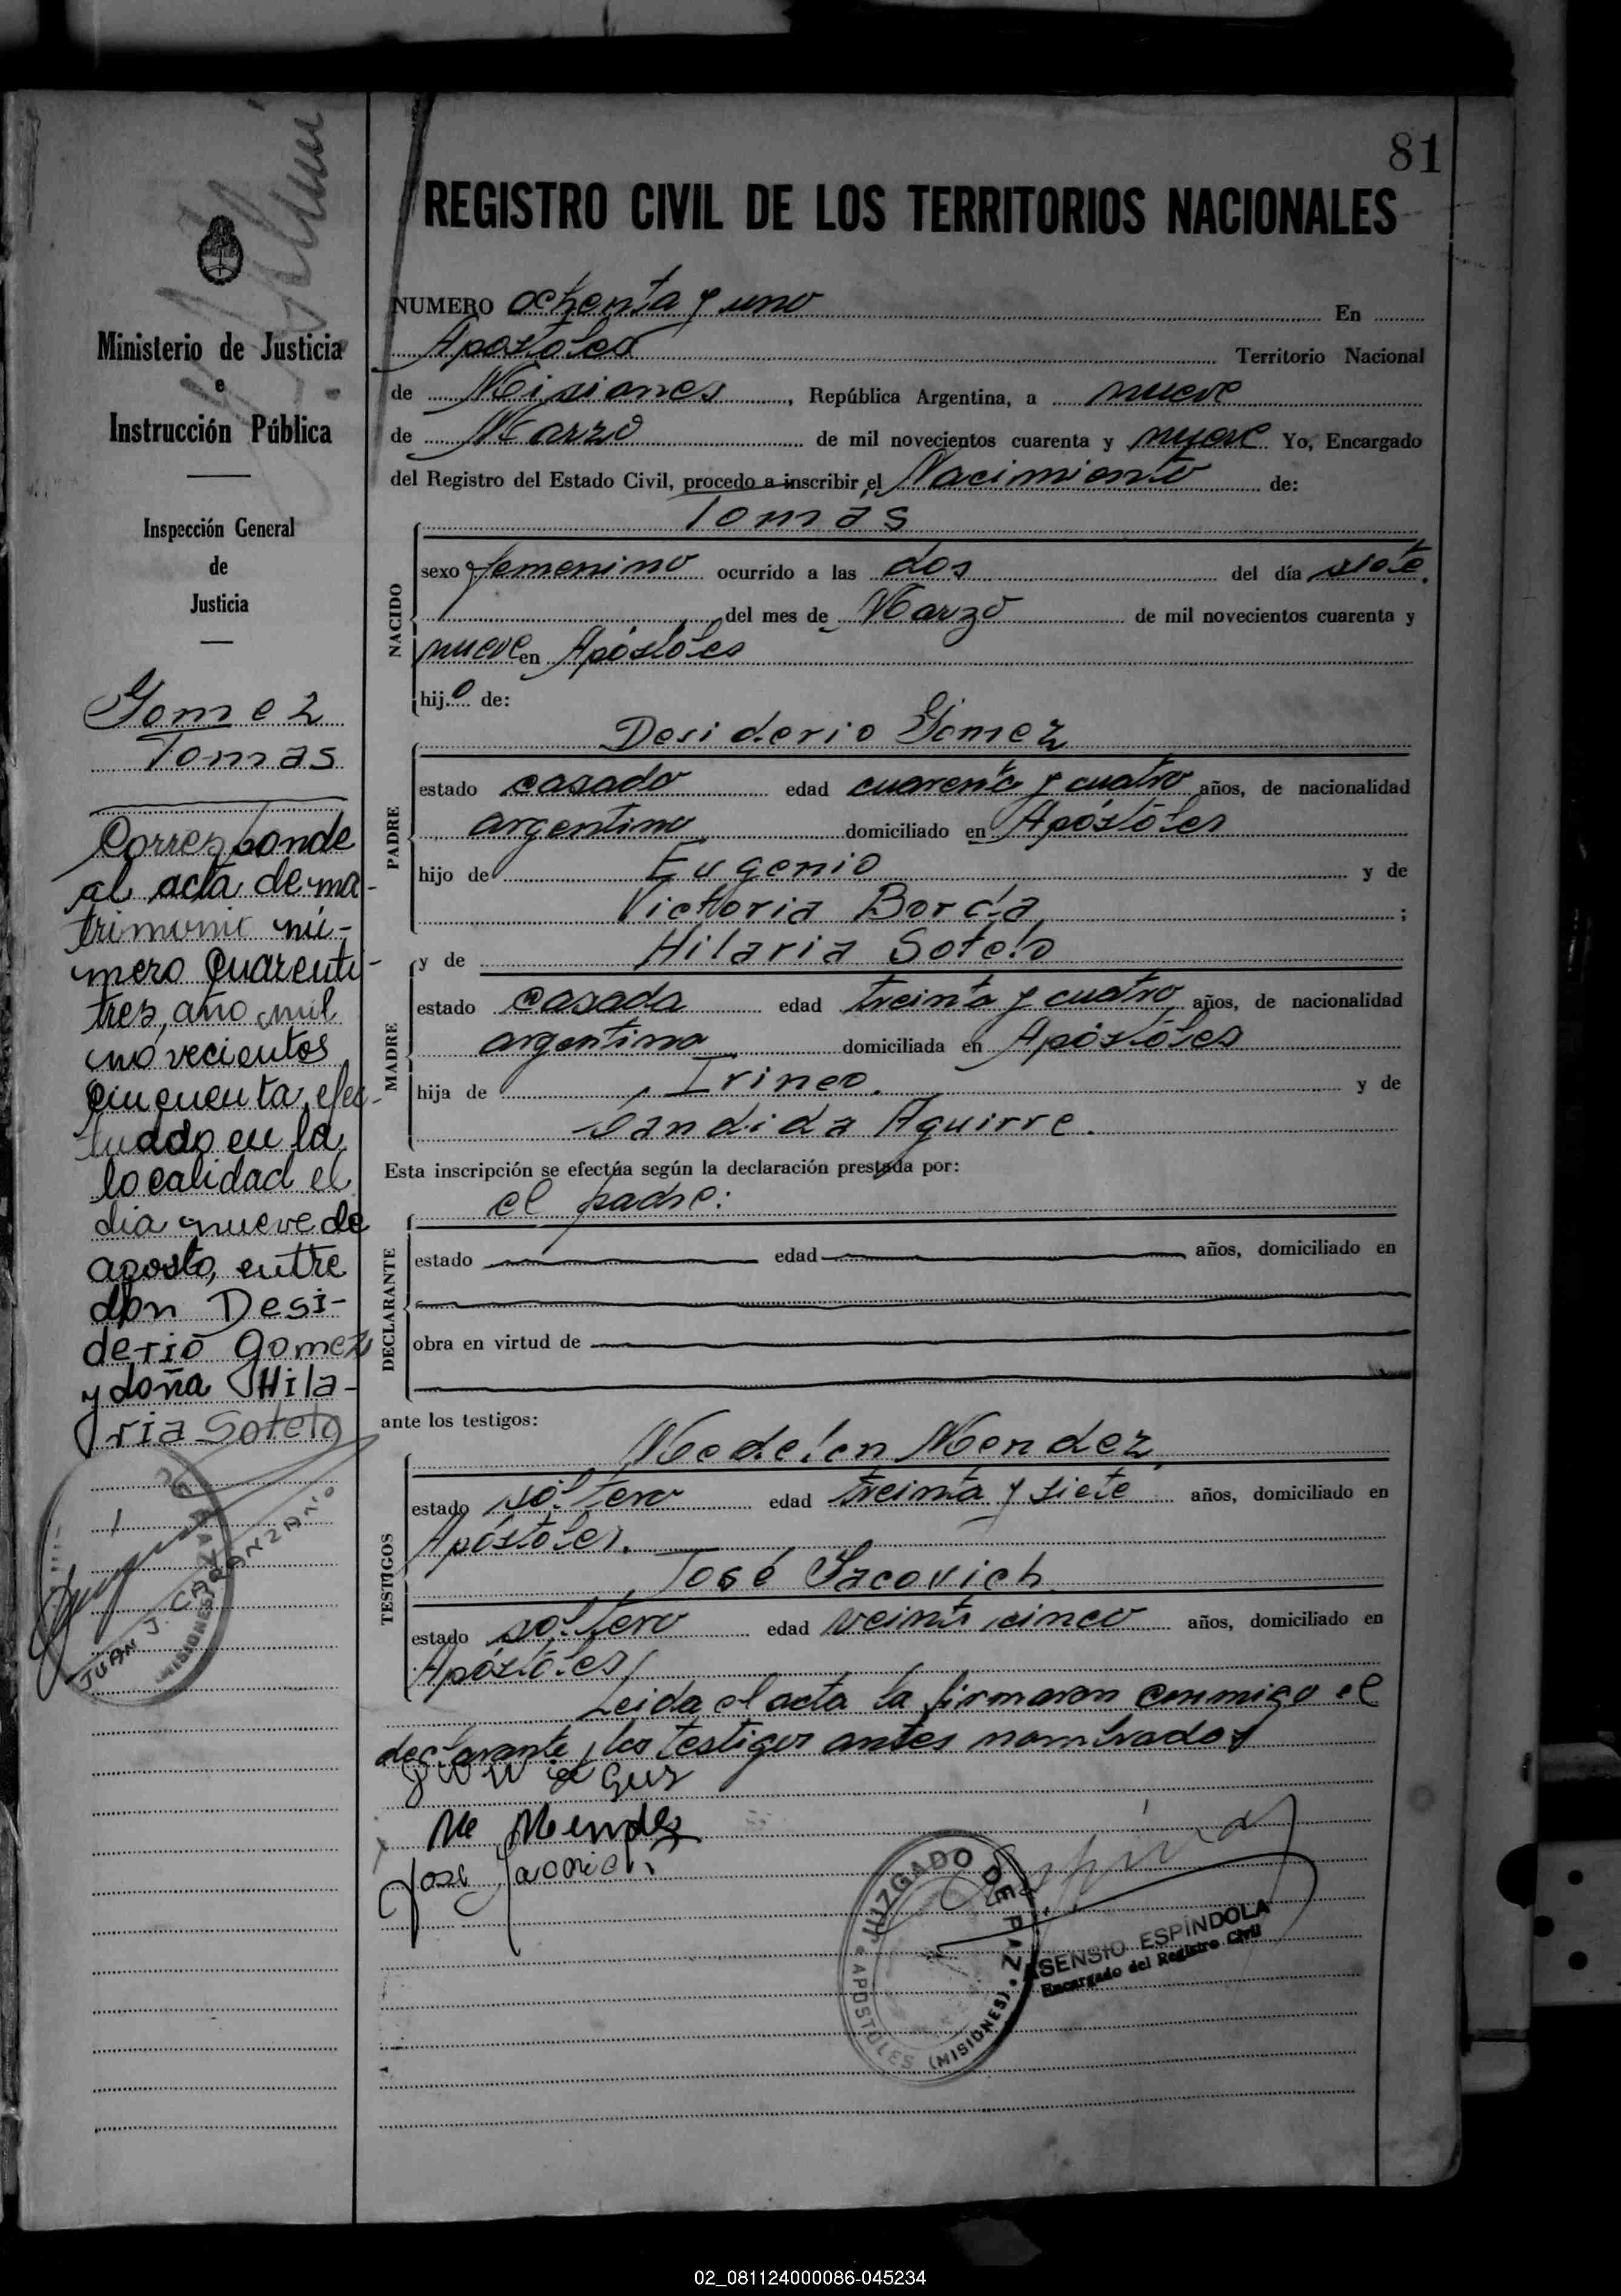 81
REGISTRO CIVIL DE LOS TERRITORIOS NACIONALES
Ministerio de Justicia
e
Instrucción Pública
Inspección General
de
Justicia
Gomez
Tomas
Corresponde
al acta de ma-
trimonio nú-
mero cuarenti-
tres, año mil
novecientos
cincuenta, efec-
tuado en la
localidad el
dia nueve de
agosto, entre
don Desi-
derio Gomez
y doña Hila-
ria Sotelo
JUAN J. CANZANIO
MISIONES
NUMERO ochenta y uno En
Apostoles Territorio Nacional
de Misiones, República Argentina, a nueve
de Marzo de mil novecientos cuarenta y nueve Yo, Encargado
del Registro del Estado Civil, procedo a inscribir el Nacimiento de:
Tomás
NACIDO
sexo femenino ocurrido a las dos del día siete.
del mes de Marzo de mil novecientos cuarenta y
nueve en Apóstoles
hijo de:
Desiderio Gomez
PADRE
estado casado edad cuarenta y cuatro años, de nacionalidad
argentino domiciliado en Apóstoles
hijo de Eugenio y de
Victoria Borda;
y de Hilaria Sotelo
MADRE
estado casada edad treinta y cuatro años, de nacionalidad
argentina domiciliada en Apóstoles
hija de Irineo. y de
Candida Aguirre.
Esta inscripción se efectúa según la declaración prestada por:
el padre:
DECLARANTE
estado edad años, domiciliado en
obra en virtud de
ante los testigos:
Medelen Mendez,
TESTIGOS
estado soltero edad treinta y siete años, domiciliado en
Apóstoles.
José Jacovich
estado soltero edad veinti cinco años, domiciliado en
Apóstoles,
Leida el acta la firmaron conmigo el
declarante y los testigos antes nombrados
Me Mendez
Jose Jacovich
JUZGADO DE PAZ
APOSTOLES (MISIONES)
ASENSIO ESPÍNDOLA
Encargado del Registro Civil
02_081124000086-045234